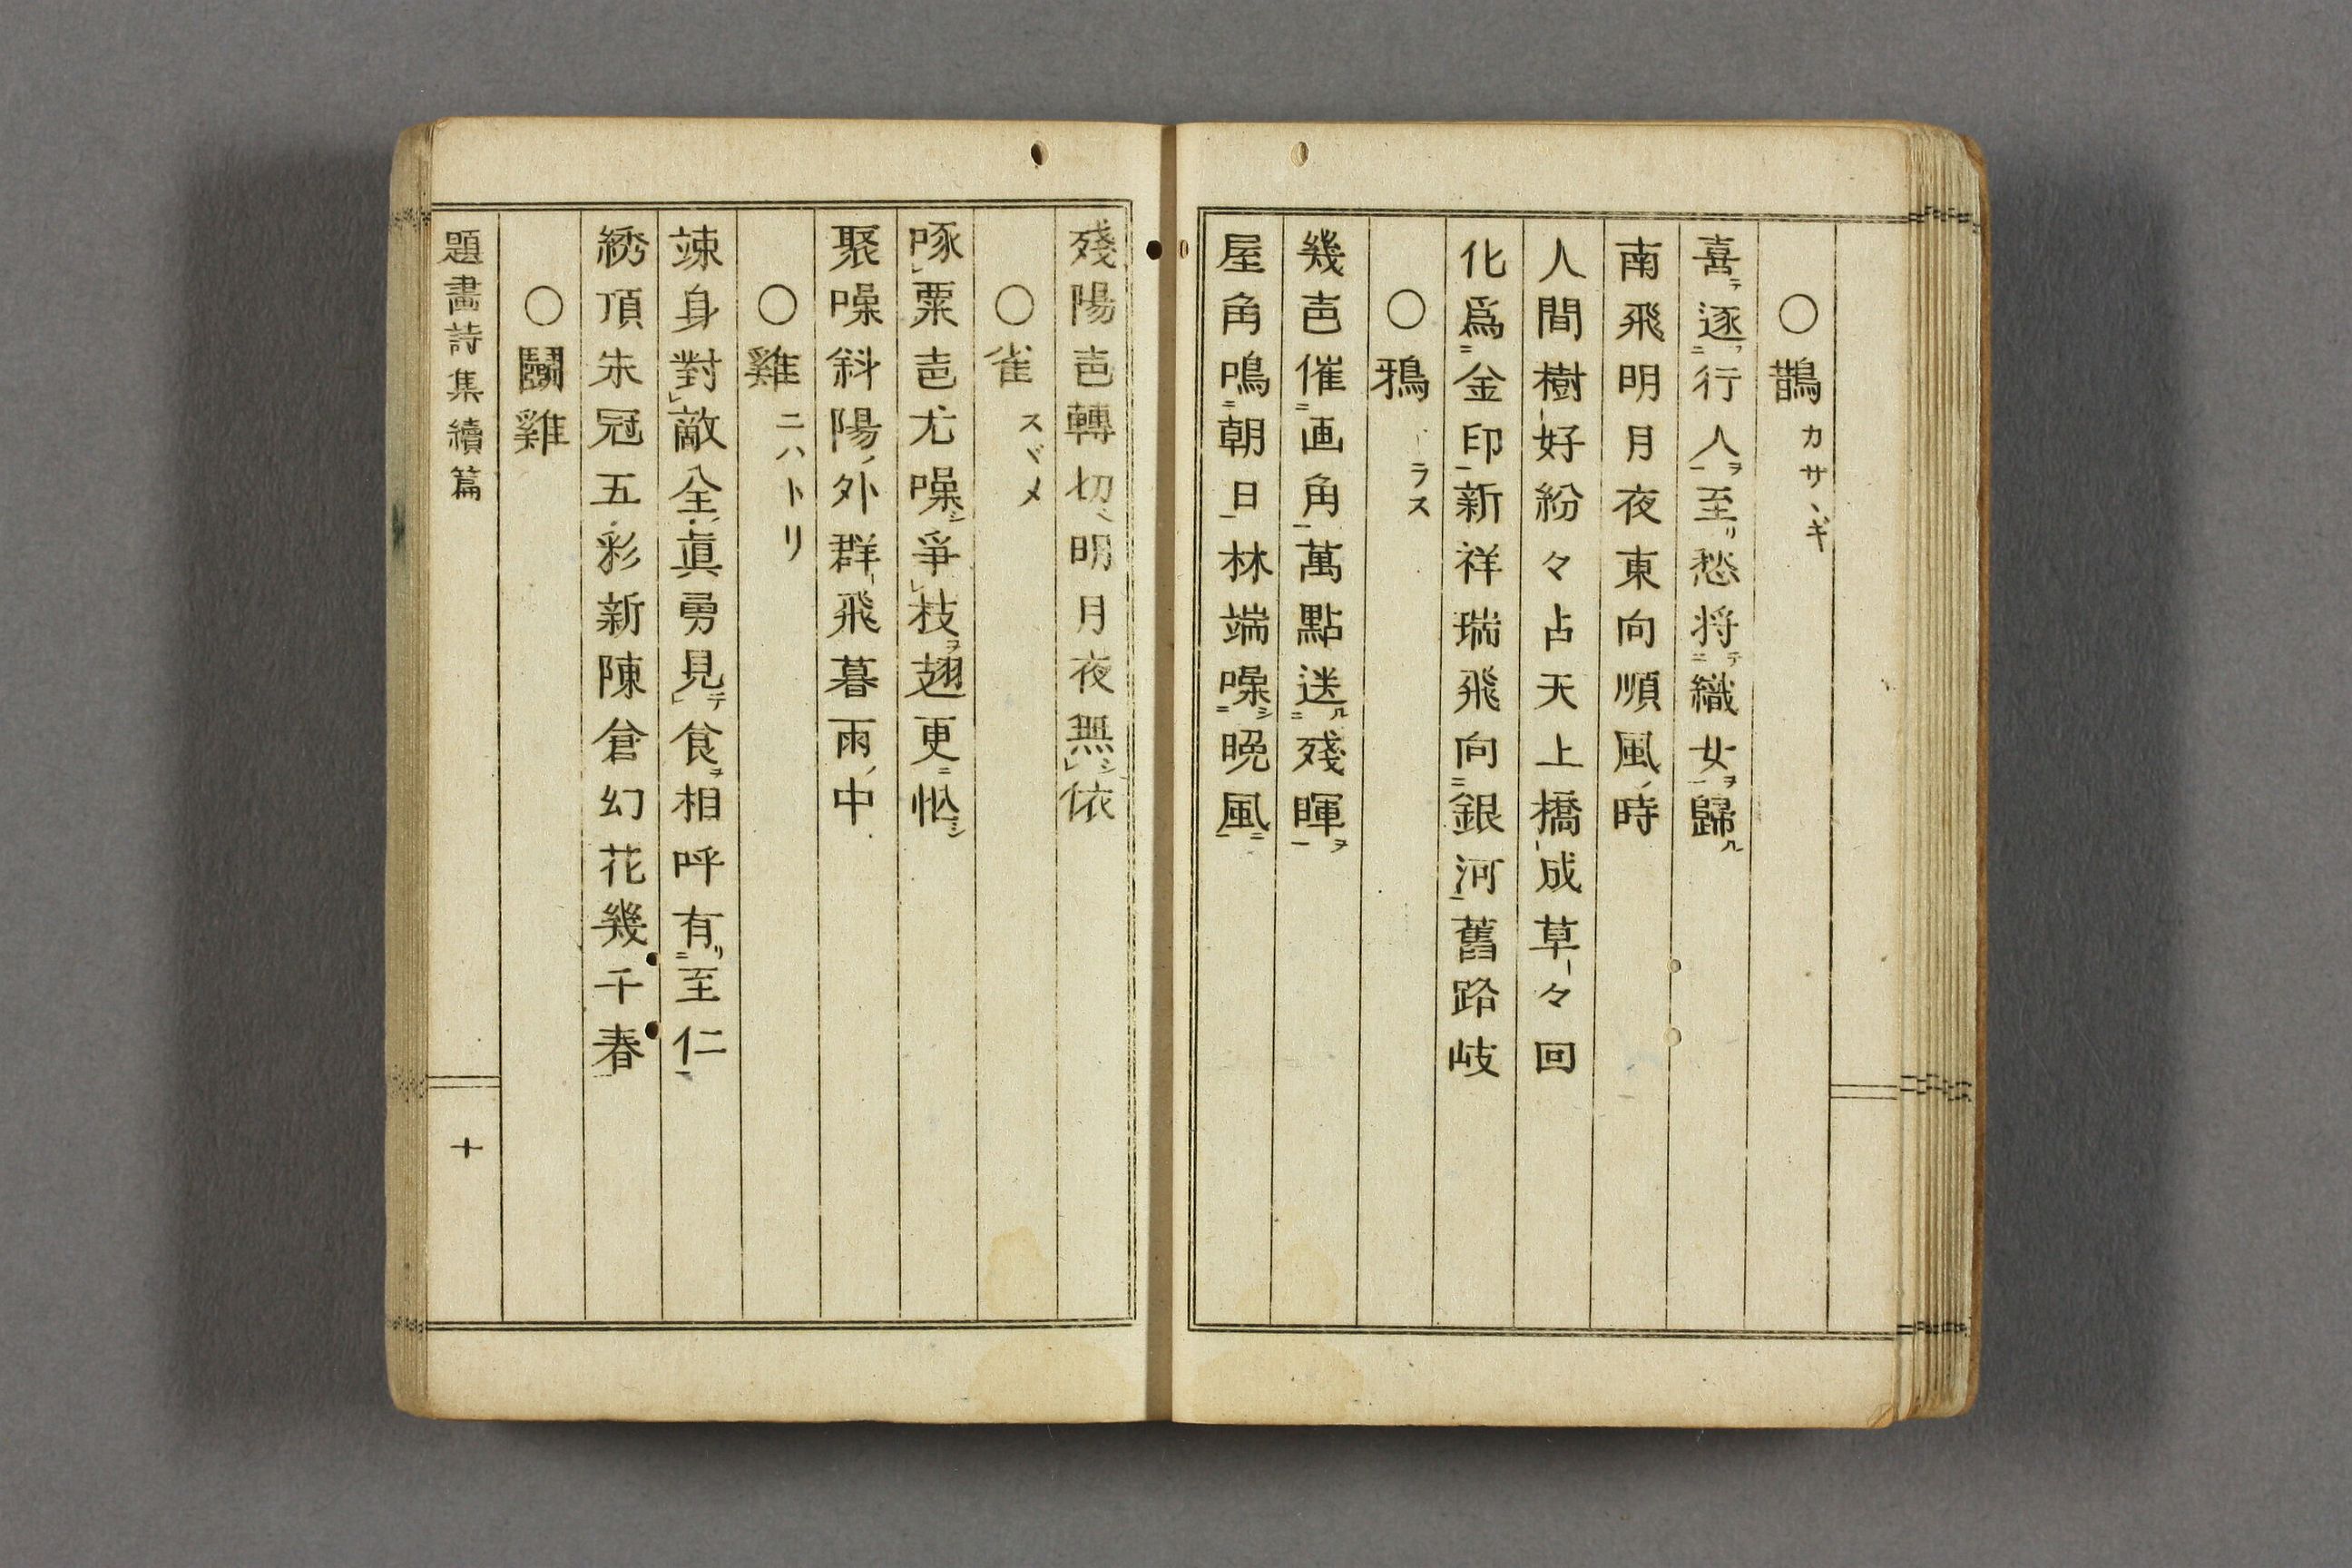 ○鵲 カサヽギ
喜テ逐フ二行人ヲ一至リ愁将テ二織女ヲ一歸ル
南飛明月夜東向順風ノ時
人間樹好紛々占天上橋成草々回
化爲二金印一新祥瑞飛向二銀河一舊路岐
○鴉 ラス
幾声催二画角一萬點送ル二殘暉ヲ一
屋角鳴二朝日一林端噪シ二晩風ニ一
殘陽声轉切明月夜無シレ依
○雀 スヾメ
啄レ粟声尤噪シ爭レ枝ヲ翅更ニ忙シ
聚噪斜陽ノ外群飛暮雨ノ中
○雞 ニハトリ
竦身對レ敵全ノ眞勇見テレ食ヲ相呼有リ二至仁一
綉頂朱冠五彩新陳倉幻花幾千春
○鬪雞
題畫詩集續篇
十